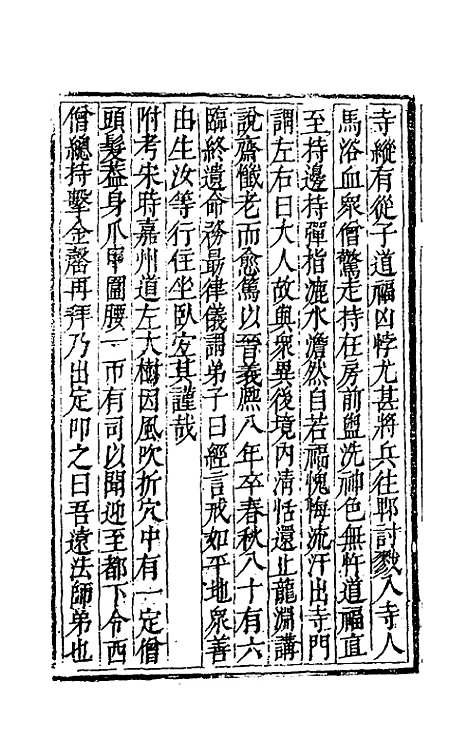 寺縱有從子道福凶悖尤甚將兵往郫討戮入寺人
馬浴血衆僧驚走持在房前盥洗神色無忤道福直
至持邊持彈指漉水澹然自若福愧悔流汗出寺門
謂左右曰大人故與衆異後境内清恬還止龍淵講
說齋懺老而愈篤以晉義熈八年卒春秋八十有六
臨終遺命務最律儀謂弟子曰經言戒如平地衆善
由生汝等行住坐臥宜其謹哉
附考宋時嘉州道左大樹因風吹折穴中有一定僧
頭髮葢身爪甲圍腰一帀有司以聞迎至都下令西
僧總持擊金磬再拜乃出定叩之曰吾遠法師弟也